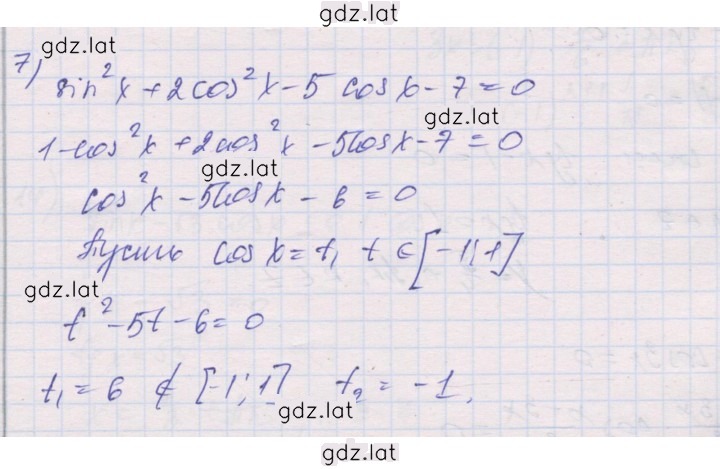 gdz.lat
gdz.lat
7)
sin²x + 2cos²x - 5 cos x - 7 = 0
gdz.lat
1 - cos²x + 2cos²x - 5cos x - 7 = 0
gdz.lat
cos²x - 5cos x - 6 = 0
Пусть cos x = t, t ∈ [-1; 1]
gdz.lat
t² - 5t - 6 = 0
t₁ = 6 ∉ [-1; 1] t₂ = -1.
gdz.lat
gdz.lat